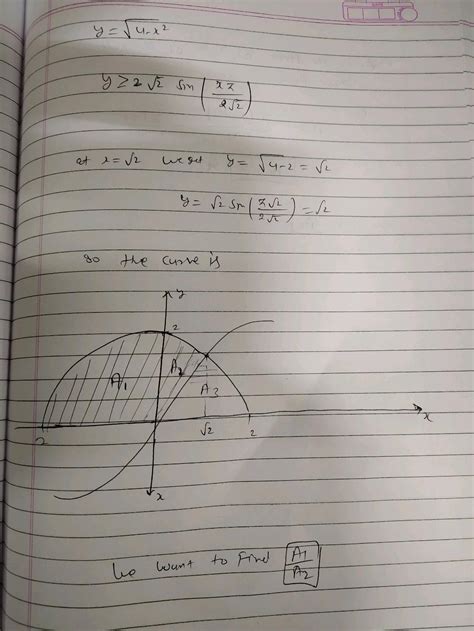 y = √4-x²
y ≥ 2 √2 sin (πx / 2√2)
at x = √2 we get y = √4-2 = √2
y = √2 sin (π√2 / 2√2) = √2
so the curve is
y
2
A1 A2
A3
2 √2 2 x
x
We want to find A1/A2